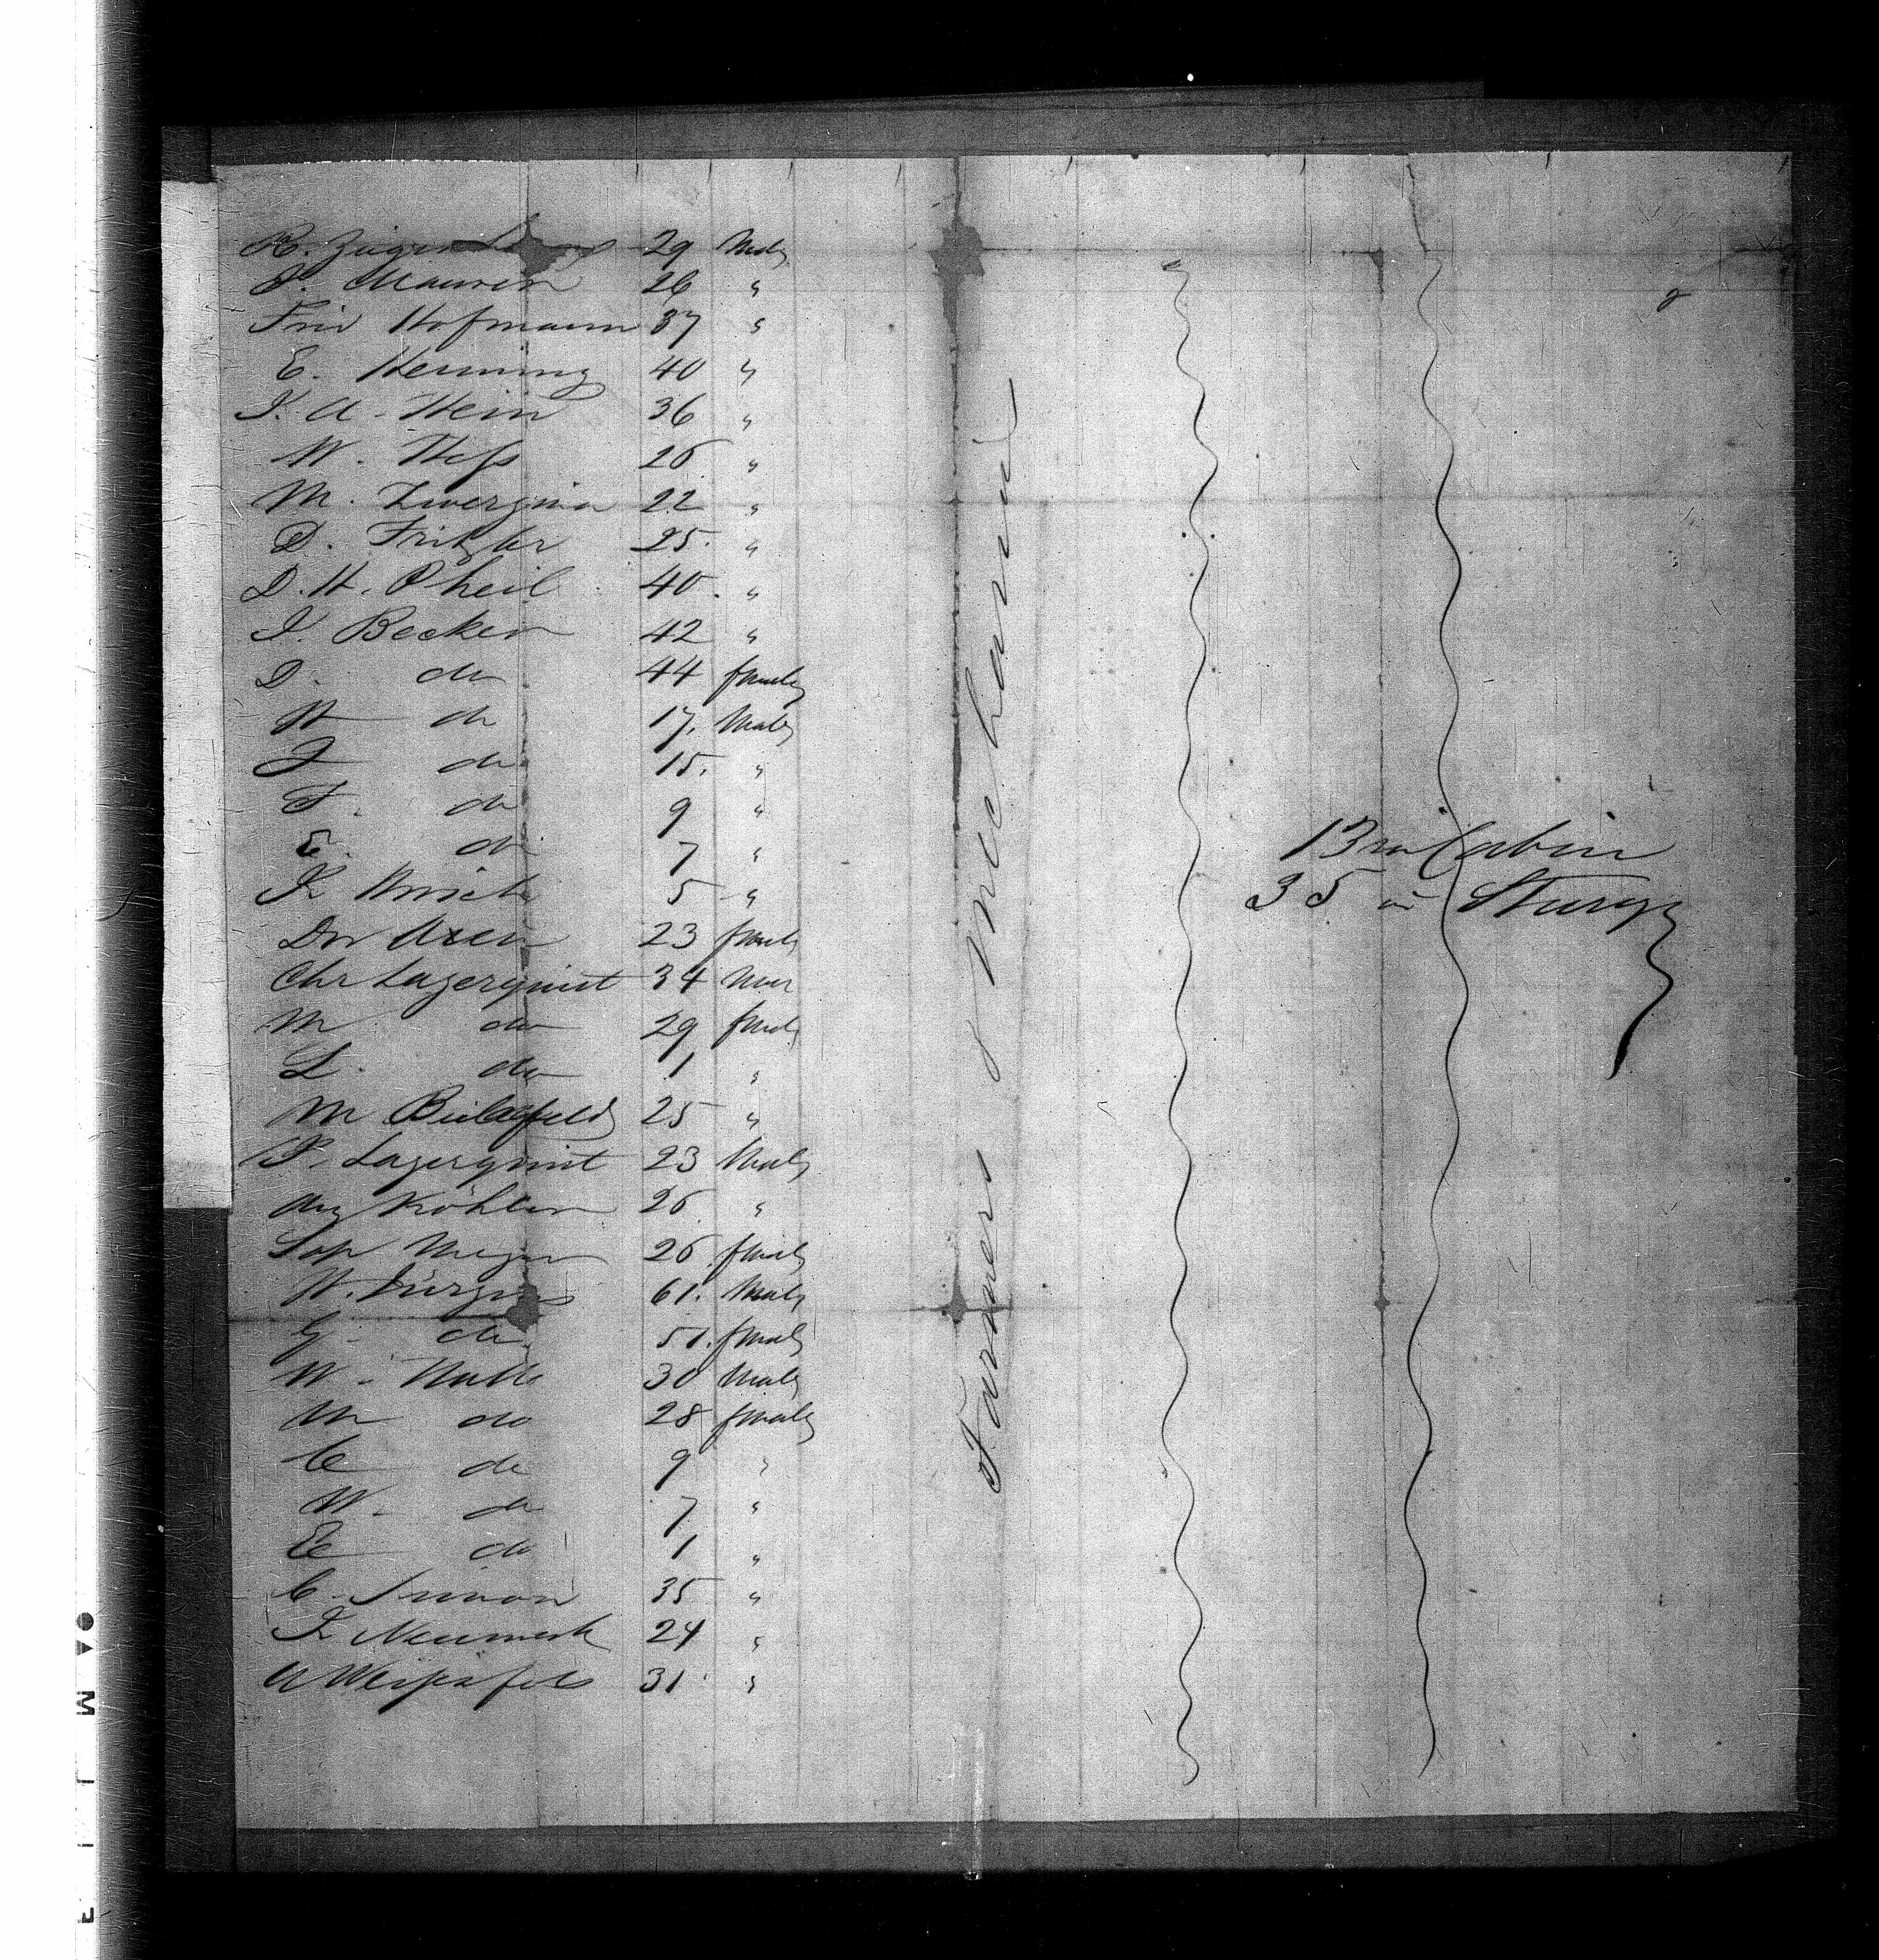 R. 29 Male
Maurer 26 "
Frid Hofmann 37 "
E. Henning 40 "
J. A. Hein 36 "
W. Hess 26 "
M. 22 "
D. Fritzler 25. "
D. H. Oheil 40. "
J. Becker 42 "
D. do 44 female
H do 17. Male
J do 15. "
F. do 9 "
E. do 7 "
5 "
23 female
Chr Lagerquist 34 Male
M do 29 female
L. do 1 "
M Bielefeld 25 "
P. Lagerquist 23 Male
Aug Köhler 26 "
Sop Meyer 26 female
H. Jürgens 61. Male
G. do 51. female
W. 30 Male
M do 28 female
C do 9 "
W. do 7 "
E do 1 "
C. Simon 35 "
24 "
A 31 "
Farmers & Mechanics
13 in Cabin
35 in Steerage